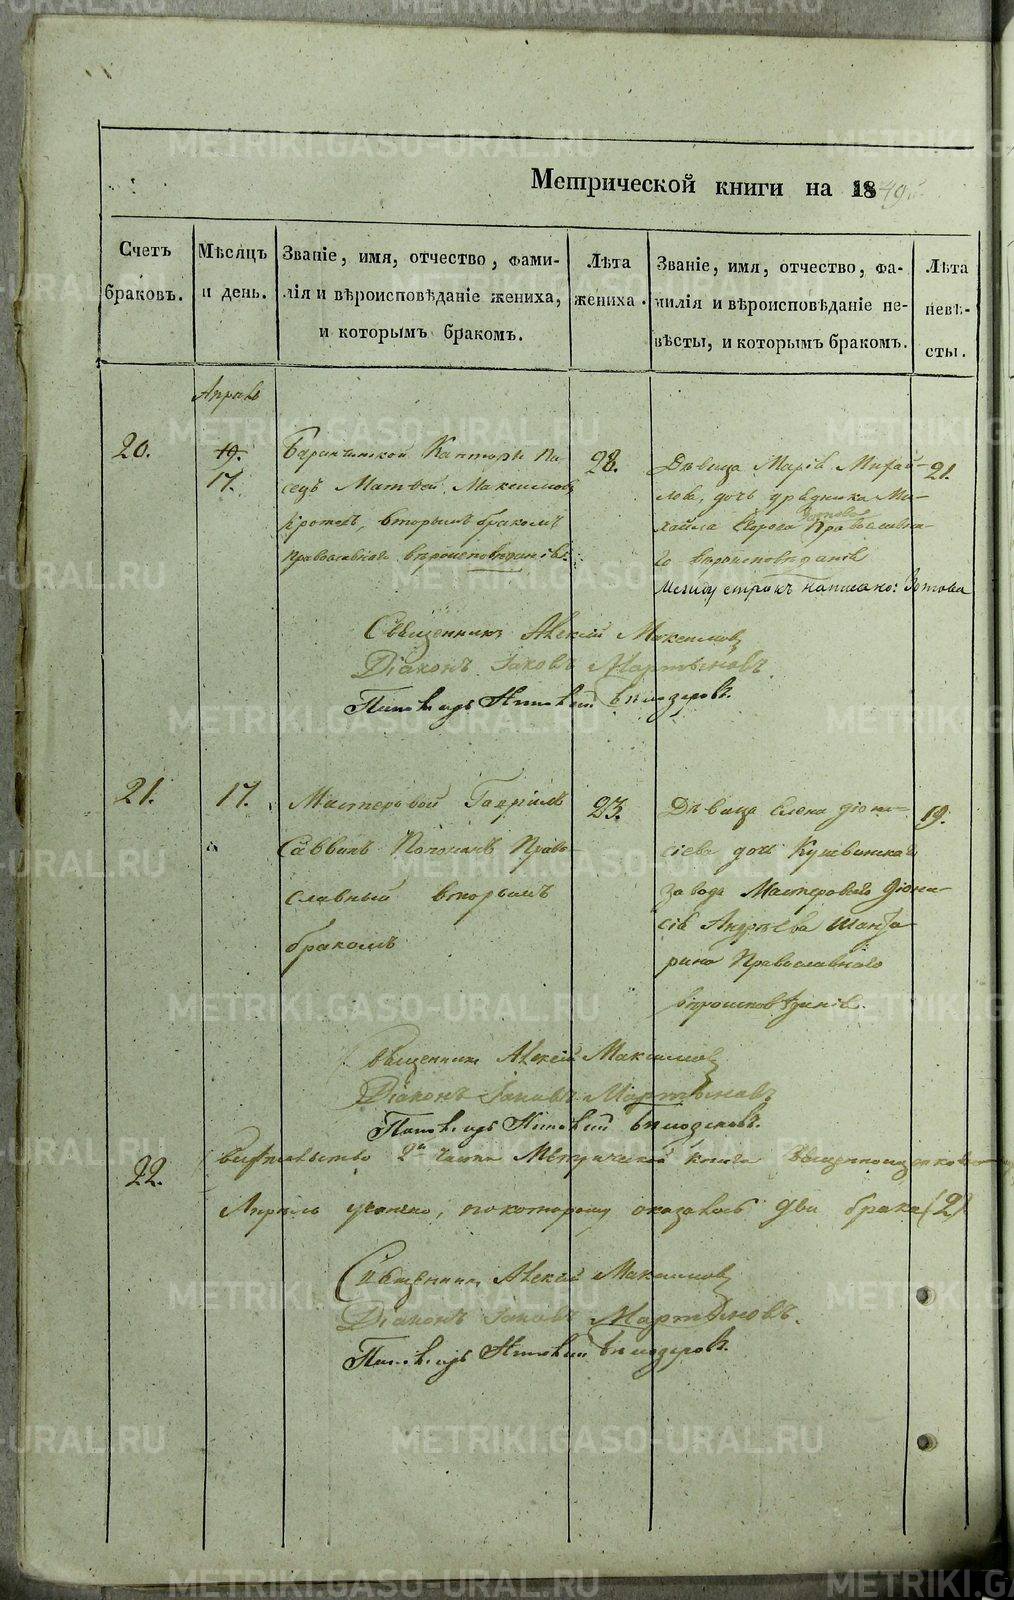 Метрической книги на 1849
Счетъ браковъ.
Мѣсяцъ и день.
Званіе, имя, отчество, фами-
лія и вѣроисповѣданіе жениха,
и которымъ бракомъ.
Лѣта
жениха.
Званіе, имя, отчество, фа-
милія и вѣроисповѣданіе не-
вѣсты, и которымъ бракомъ.
Лѣта
невѣ-
сты.
Апрѣль
20.
19.
17.
Баранчинской Канторы Пи-
сецъ Матвей Максимовъ
Кротовъ, вторымъ бракомъ
православнаго вѣроисповѣданія.
28.
Дѣвица Марія Михай-
лова, дочь урядника Ми-
хайла Егорова Зотова Православна-
го вѣроисповѣданія
Между строкъ написано: Зотова
21.
Священникъ Алексій Максимовъ
Діаконъ Іаковъ Мартыновъ.
Пономарь Николай Бѣлозеровъ.
21.
17.
Мастеровой Гавріилъ
Саввинъ Право-
славный вторымъ
бракомъ
23.
Дѣвица Елена Діони-
сіева дочь Кушвинскаго
завода Мастероваго Діони-
сія Андреева
Православнаго
вѣроисповѣданія.
19.
Священникъ Алексій Максимовъ
Діаконъ Іаковъ Мартыновъ.
Пономарь Николай Бѣлозеровъ.
22.
Свидѣтельство 2й части Метрической книги
Апрѣль учинено, по которому оказалось два брака (2)
Священникъ Алексій Максимовъ
Діаконъ Іаковъ Мартыновъ.
Пономарь Николай Бѣлозеровъ.
METRIKI.GASO-URAL.RU